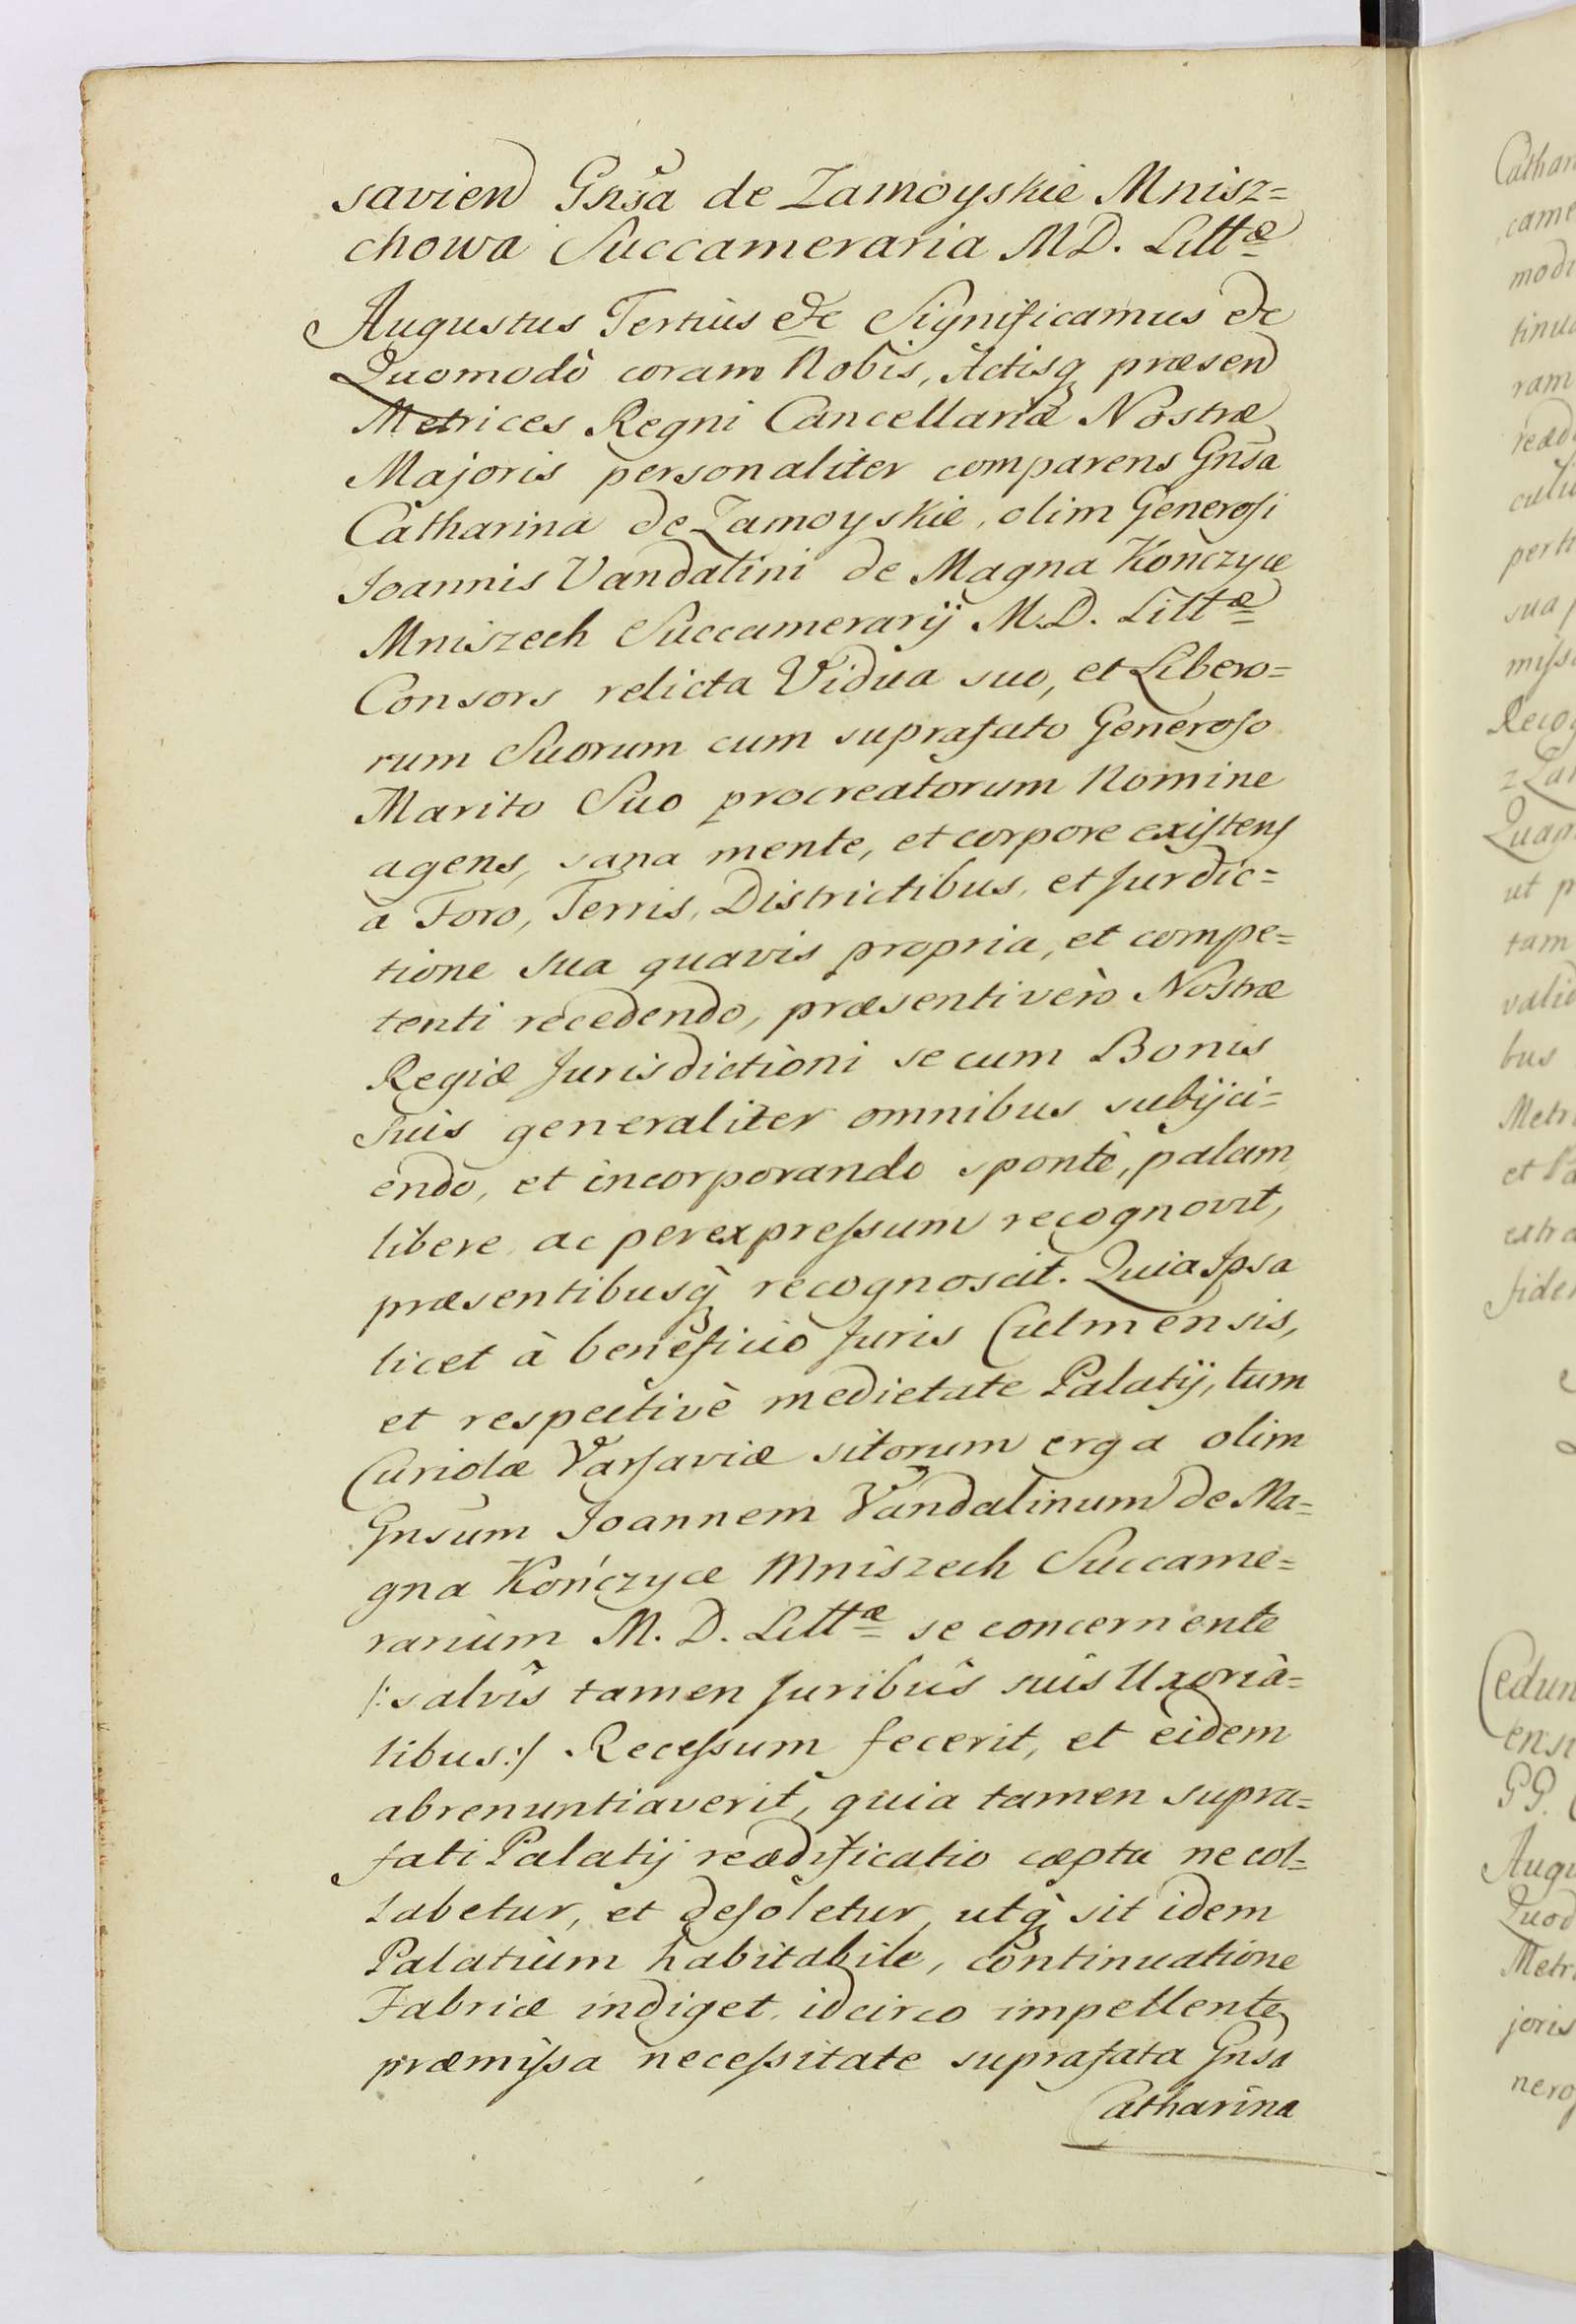 savien Gnsa de Zamoyskie Mnisz=
chowa Succameraria M.D. Littæ
Augustus Tertius &c Significamus &c
Quomodò coram Nobis, Actisq præsen
Metrices Regni Cancellariæ Nostræ
Majoris personaliter comparens Gnsa
Catharina de Zamoyskie, olim Generosi
Joannis Vandalini de Magna Kończyce
Mniszech Succamerarij M.D. Littæ
Consors relicta Vidua suo, et Libero=
rum Suorum cum suprafato Generoso
Marito Suo procreatorum Nomine
agens, sana mente, et corpore existens
a Foro, Terris, Districtibus, et Jurdic=
tione sua quavis propria, et compe=
tenti recedendo, præsenti verò Nostræ
Regiæ Jurisdictioni se cum Bonis
Suis generaliter omnibus subijci=
endo, et incorporando spontè, palam
libere ac per expressum recognovit,
præsentibusq̀ recognoscit. Quia Ipsa
licet à beneficiò Juris Culmensis,
et respectivè medietate Palatij, tum
Curiolæ Varsaviæ sitorum erga olim
Gnsum Joannem Vandalinum de Ma=
gna Kończyce Mniszech Succame=
rarium M. D. Littæ se concernente
/: salvis tamen Juribus suis Uxoria=
libus :/ Recessum fecerit, et eidem
abrenuntiaverit, quia tamen supra=
fati Palatij reædificatio cæpta ne col=
labetur, et desoletur, utq̀ sit idem
Palatium habitabile, continuatione
Fabricæ indiget, idcirco impellente
præmissa necessitate suprafata Gnsa
Catharina